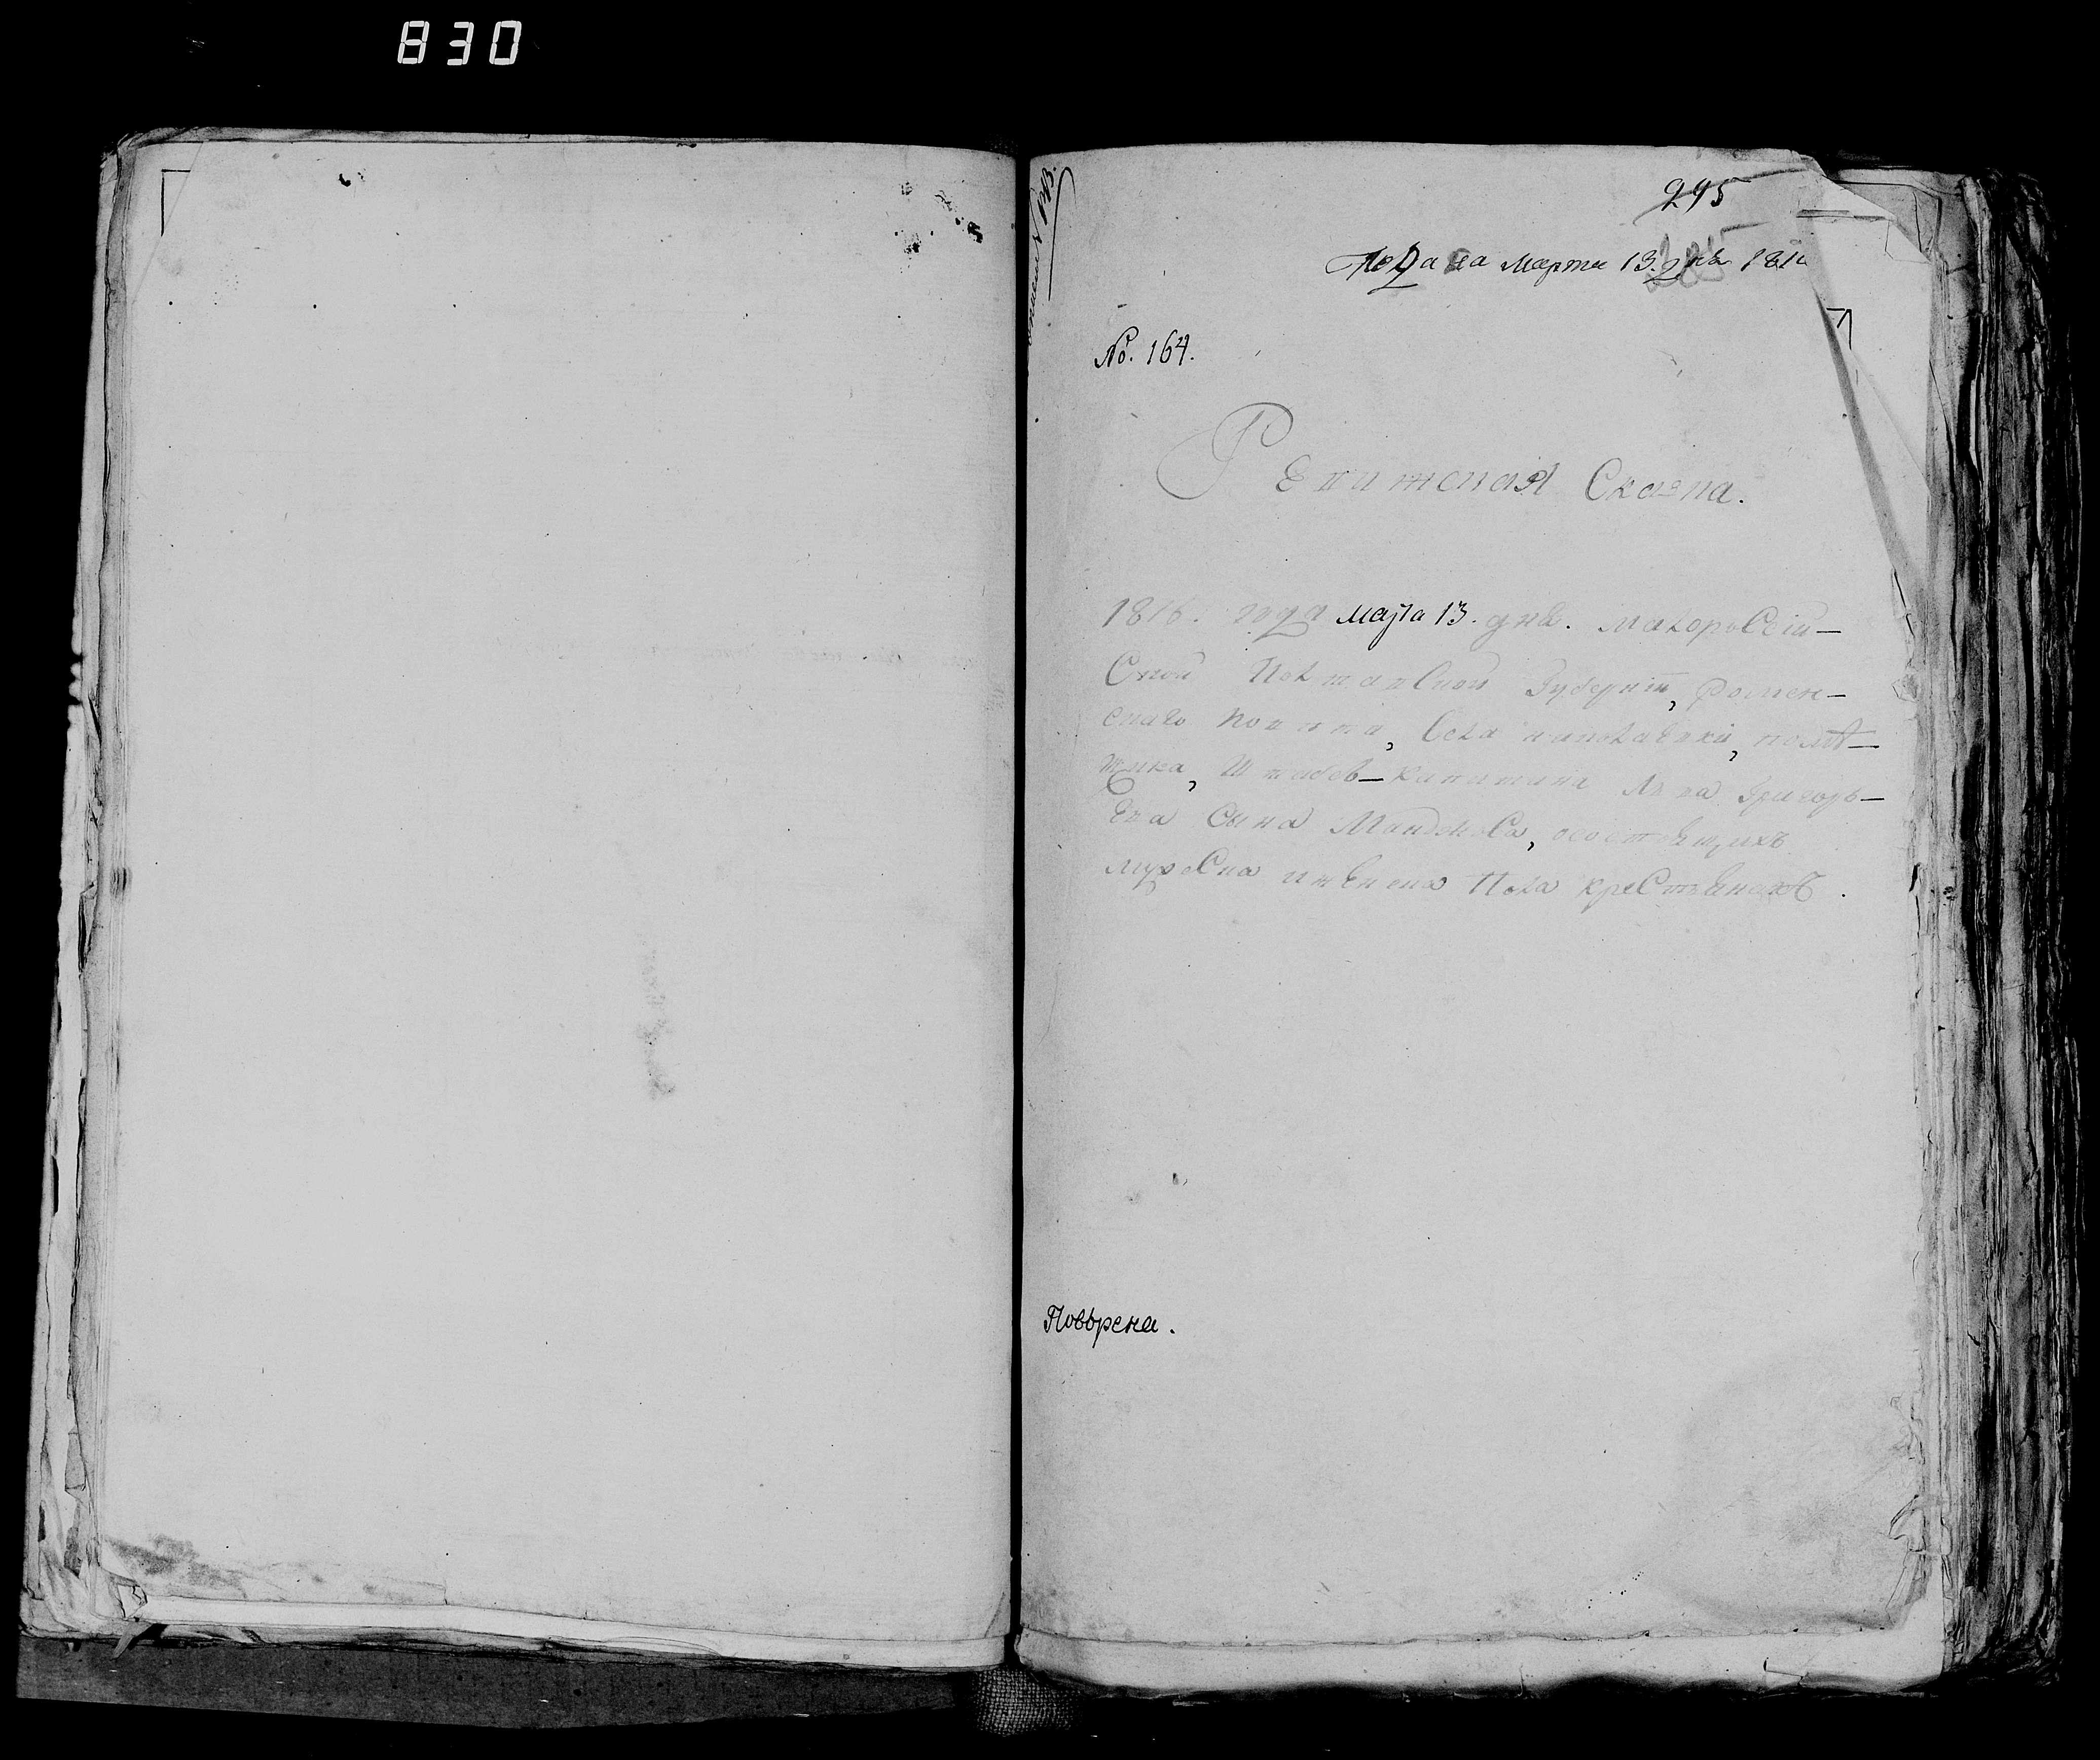 830
295
Подана Марта 13. дня 1816
№. 164.
Ревизская Сказка.
1816. года марта 13. дня. Малороссій-
Ской Полтавской Губерніи, Ромен-
скаго повѣта, Села поме-
щика, Штабсъ-Капитана Григорь-
ева Сына состоящихъ
мужеска и женска Пола крестьянахъ.
Повѣрена.